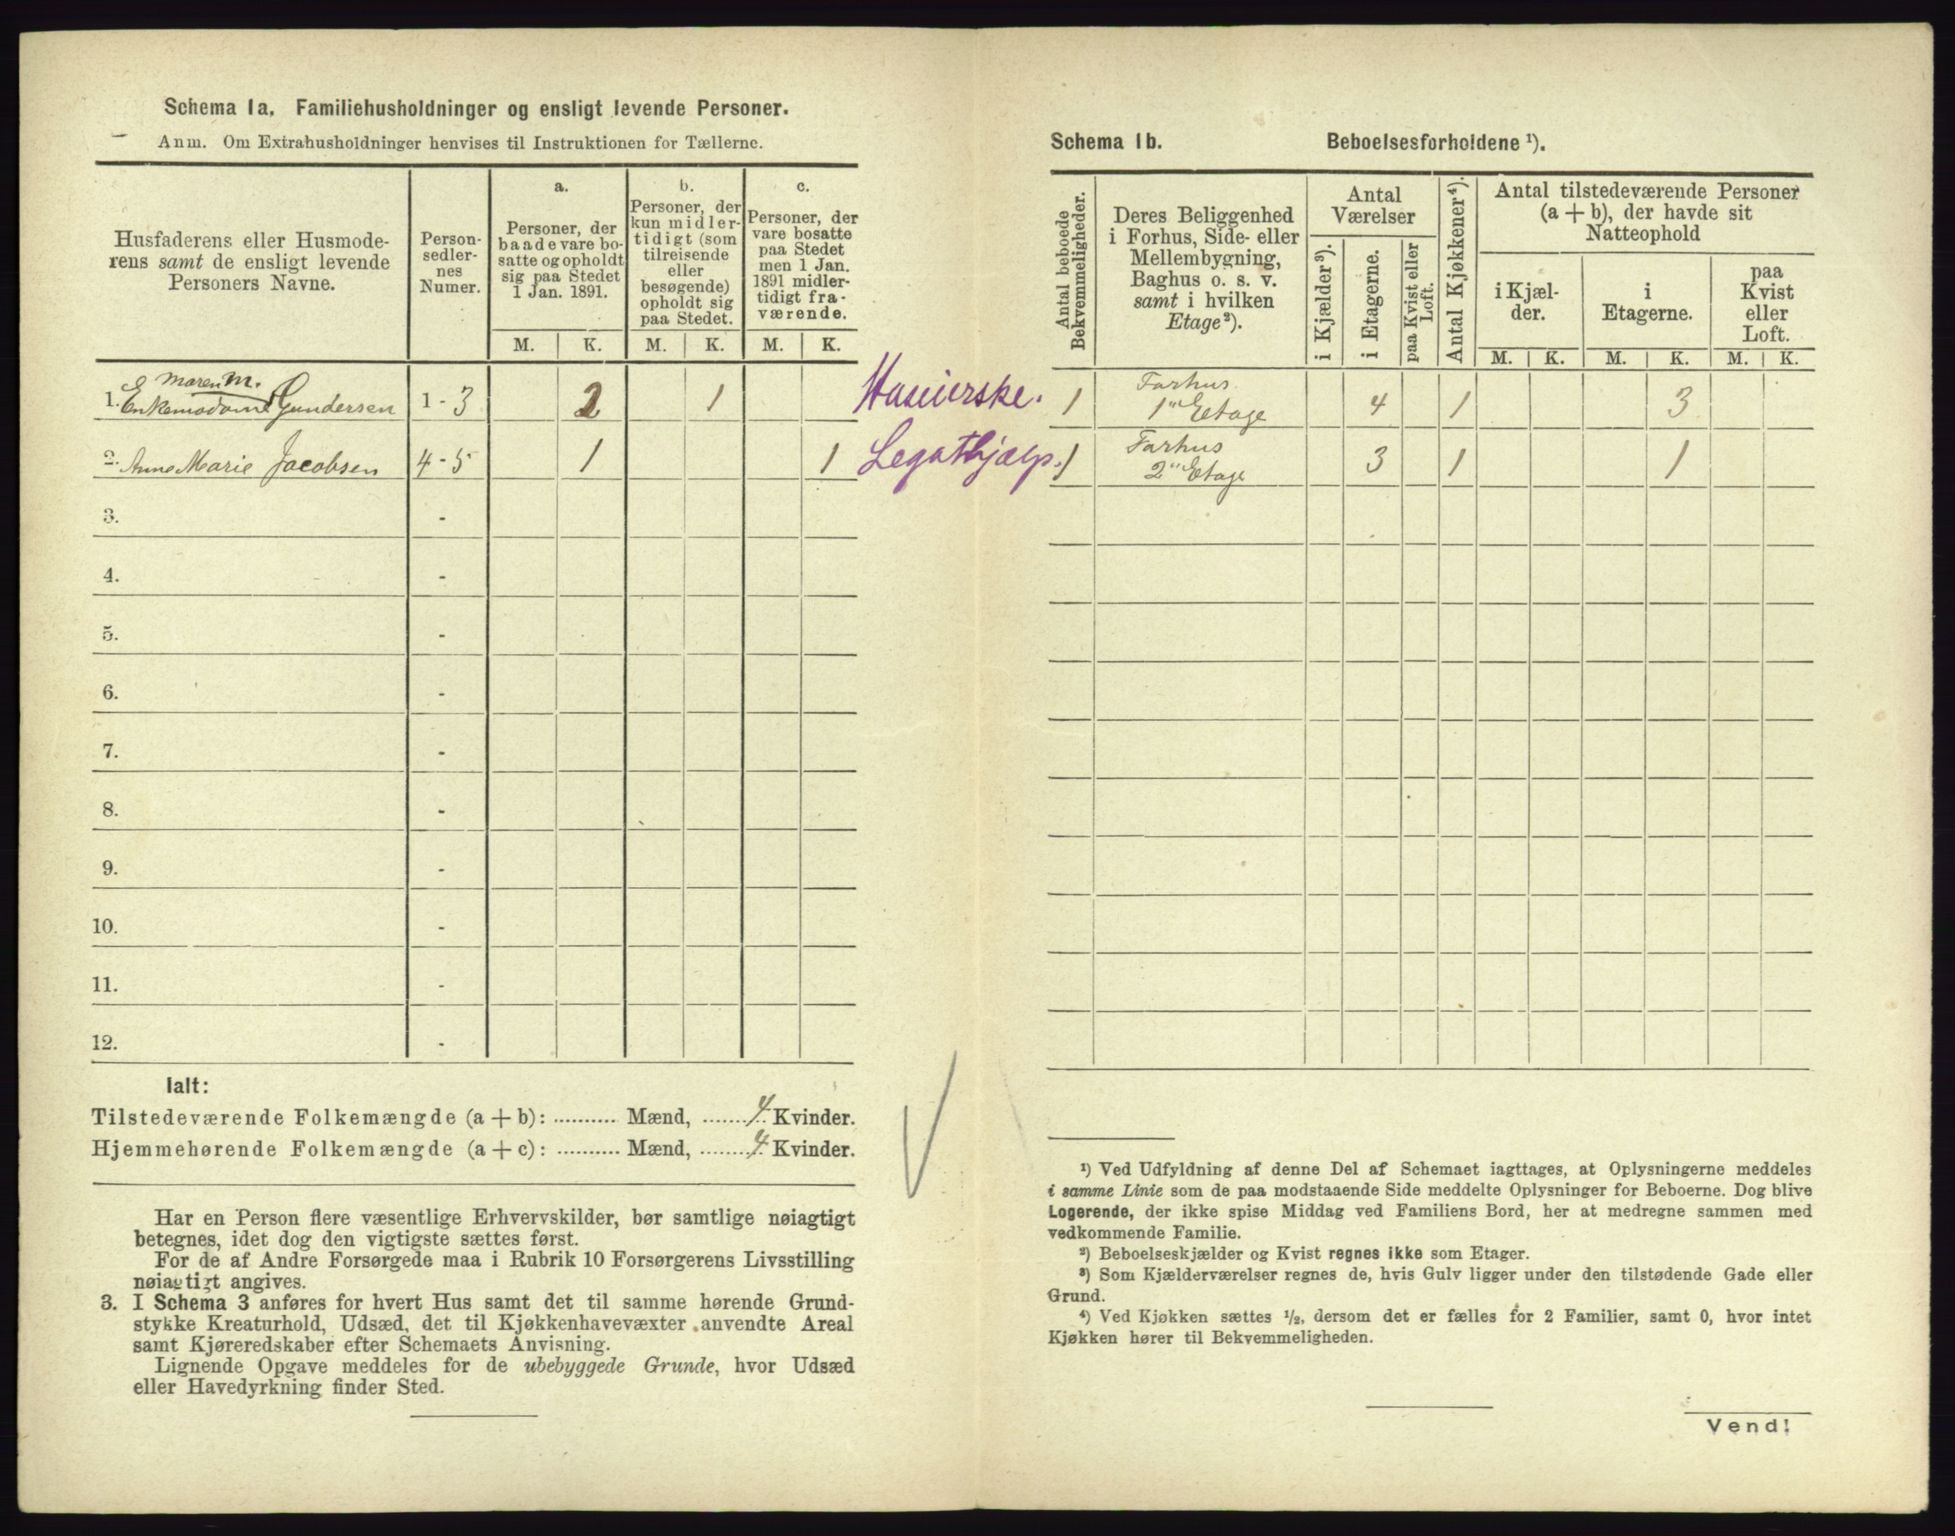 Schema 1a. Familiehusholdninger og ensligt levende Personer.
Anm. Om Extrahusholdninger henvises til Instruktionen for Tællerne.
Husfaderens eller Husmode-
rens samt de ensligt levende
Personers Navne.
Person-
sedler-
nes
Numer.
a.
Personer, der
baade vare bo-
satte og opholdt
sig paa Stedet
1 Jan. 1891.
b.
Personer, der
kun midler-
tidigt (som
tilreisende
eller
besøgende)
opholdt sig
paa Stedet.
c.
Personer, der
vare bosatte
paa Stedet
men 1 Jan.
1891 midler-
tidigt fra-
værende.
M. K. M. K. M. K.
Maren M.
1. Enkemadame Gundersen 1 - 3 2 1
2. Anne Marie Jacobsen 4 - 5 1 1
3. -
4. -
5. -
6. -
7. -
8. -
9. -
10. -
11. -
12. -
Ialt:
Tilstedeværende Folkemængde (a + b): .......... Mænd, ....... 4 Kvinder.
Hjemmehørende Folkemængde (a + c): .......... Mænd, ....... 4 Kvinder.
Har en Person flere væsentlige Erhvervskilder, bør samtlige nøiagtigt
betegnes, idet dog den vigtigste sættes først.
For de af Andre Forsørgede maa i Rubrik 10 Forsørgerens Livsstilling
nøiagtigt angives.
3. I Schema 3 anføres for hvert Hus samt det til samme hørende Grund-
stykke Kreaturhold, Udsæd, det til Kjøkkenhavevæxter anvendte Areal
samt Kjøreredskaber efter Schemaets Anvisning.
Lignende Opgave meddeles for de ubebyggede Grunde, hvor Udsæd
eller Havedyrkning finder Sted.
Schema 1b. Beboelsesforholdene ¹).
Antal beboede
Bekvemmeligheder.
Deres Beliggenhed
i Forhus, Side- eller
Mellembygning,
Baghus o. s. v.
samt i hvilken
Etage²).
Antal
Værelser
i Kjælder³).
i Etagerne.
paa Kvist eller
Loft.
Antal Kjøkkener⁴).
Antal tilstedeværende Personer
(a + b), der havde sit
Natteophold
i Kjæl-
der.
i
Etagerne.
paa
Kvist
eller
Loft.
M. K. M. K. M. K.
Haseierske. 1 Forhus 1ste Etage 4 1 3
Legathjælp. 1 Forhus 2 Etage 3 1 1
¹) Ved Udfyldning af denne Del af Schemaet iagttages, at Oplysningerne meddeles
i samme Linie som de paa modstaaende Side meddelte Oplysninger for Beboerne. Dog blive
Logerende, der ikke spise Middag ved Familiens Bord, her at medregne sammen med
vedkommende Familie.
²) Beboelseskjælder og Kvist regnes ikke som Etager.
³) Som Kjælderværelser regnes de, hvis Gulv ligger under den tilstødende Gade eller
Grund.
⁴) Ved Kjøkken sættes ½, dersom det er fælles for 2 Familier, samt 0, hvor intet
Kjøkken hører til Bekvemmeligheden.
Vend!